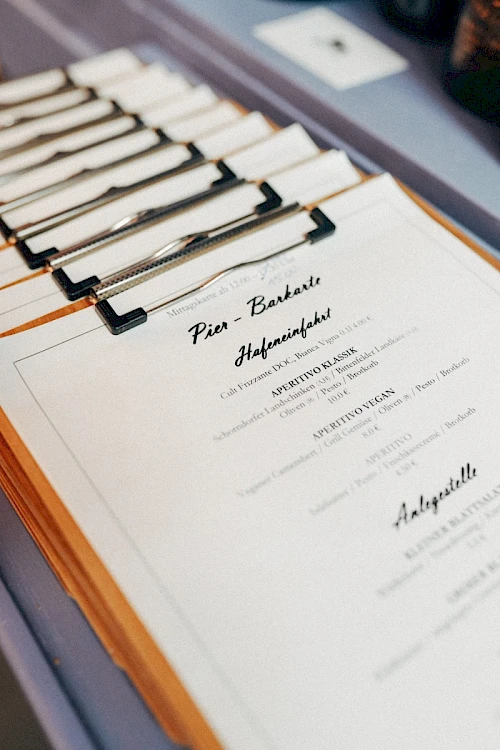 Mittagskarte ab 12:00 –
Pier - Barkarte
Hafeneinfahrt
Cult Frizzante DOC, Bianca Vigna 0.1l 4.00 €
APERITIVO KLASSIK
Schorndorfer Landschinken / Bittenfelder Landkäse
Oliven / Pesto / Brotkorb
10.0 €
APERITIVO VEGAN
Veganer Camembert / Grill Gemüse / Oliven / Pesto / Brotkorb
8.0 €
APERITIVO
/ Pesto / Frischkäsecreme / Brotkorb
4.50 €
Anlegestelle
KLEINER BLATTSALAT